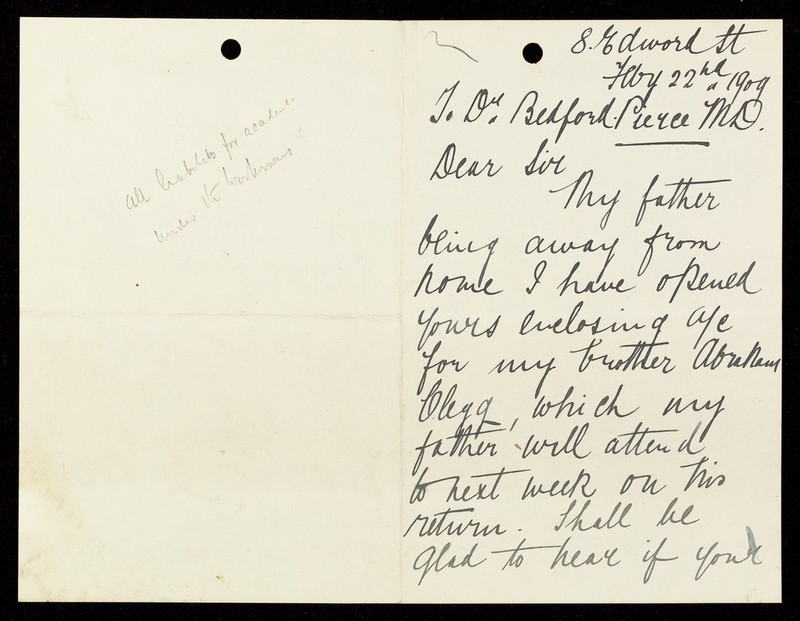 all liabilities for accidents
under the Workmans
8. Edword St
Feby 22nd 1909
To Dr. Bedford. Pierce M.D.
Dear Sir
My father
being away from
home I have opened
yours enclosing a/c
for my brother Abraham
Clegg, which my
father will attend
to next week on his
return. Shall be
glad to hear if your